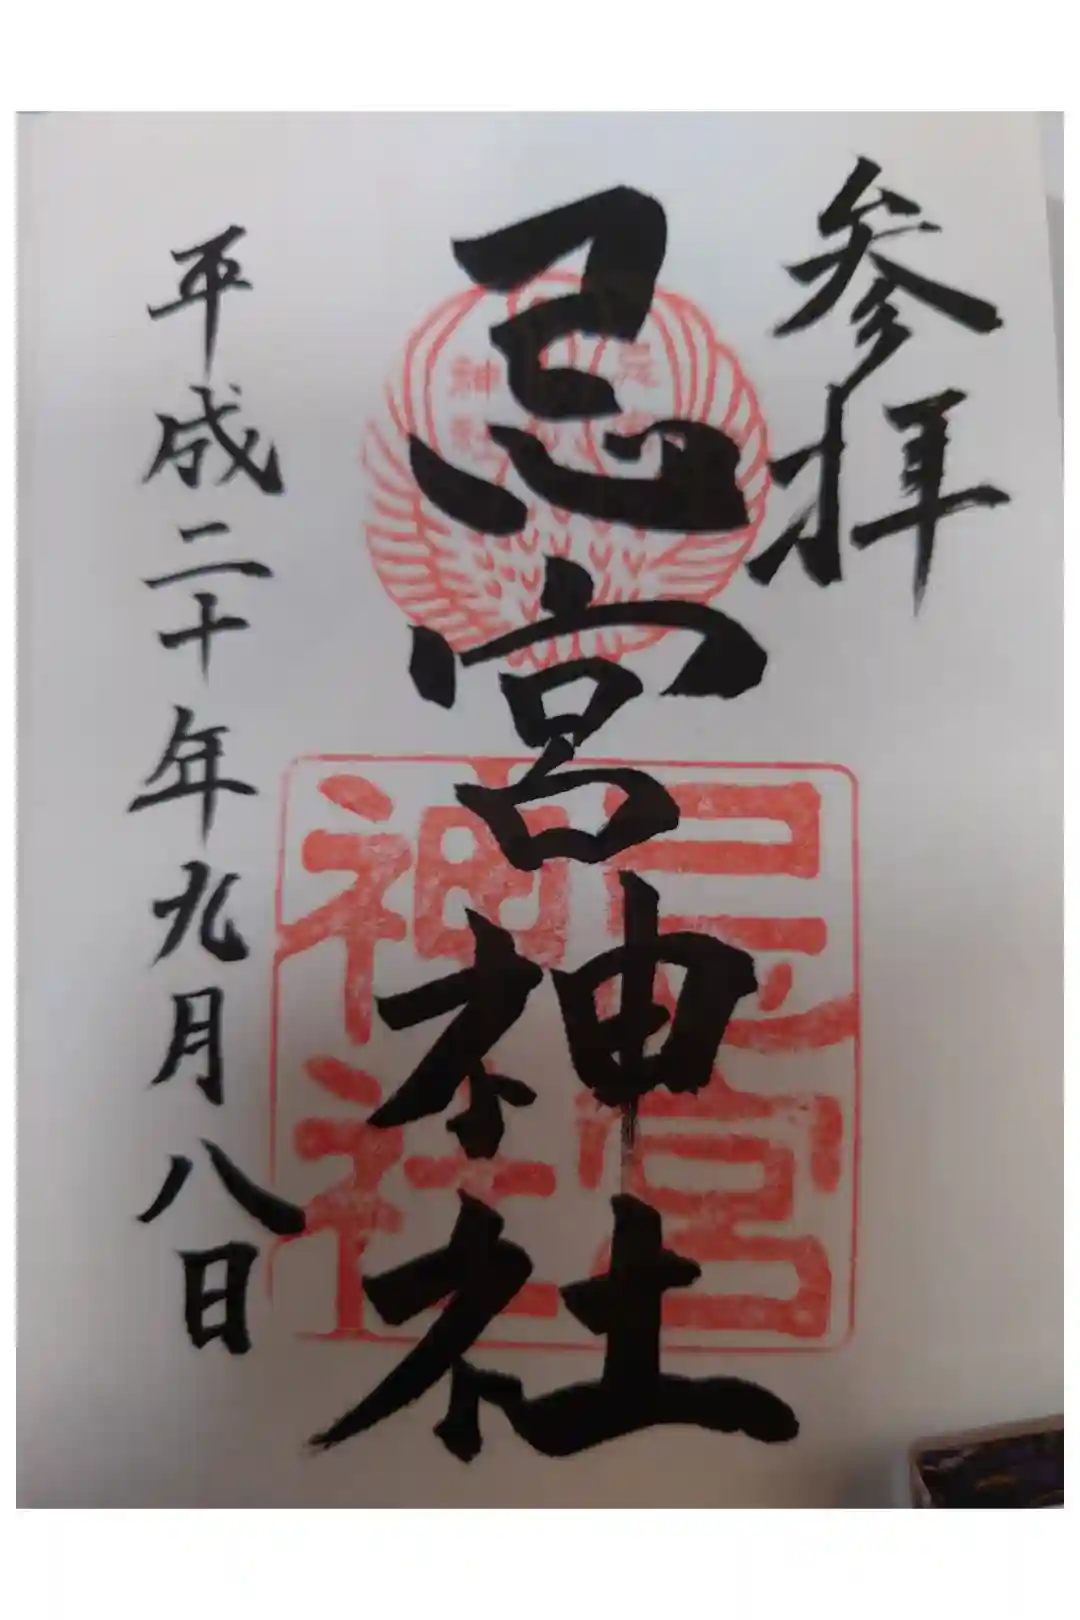 参拝
忌宮神社
平成二十年九月八日
忌宮
神社
忌宮
神社